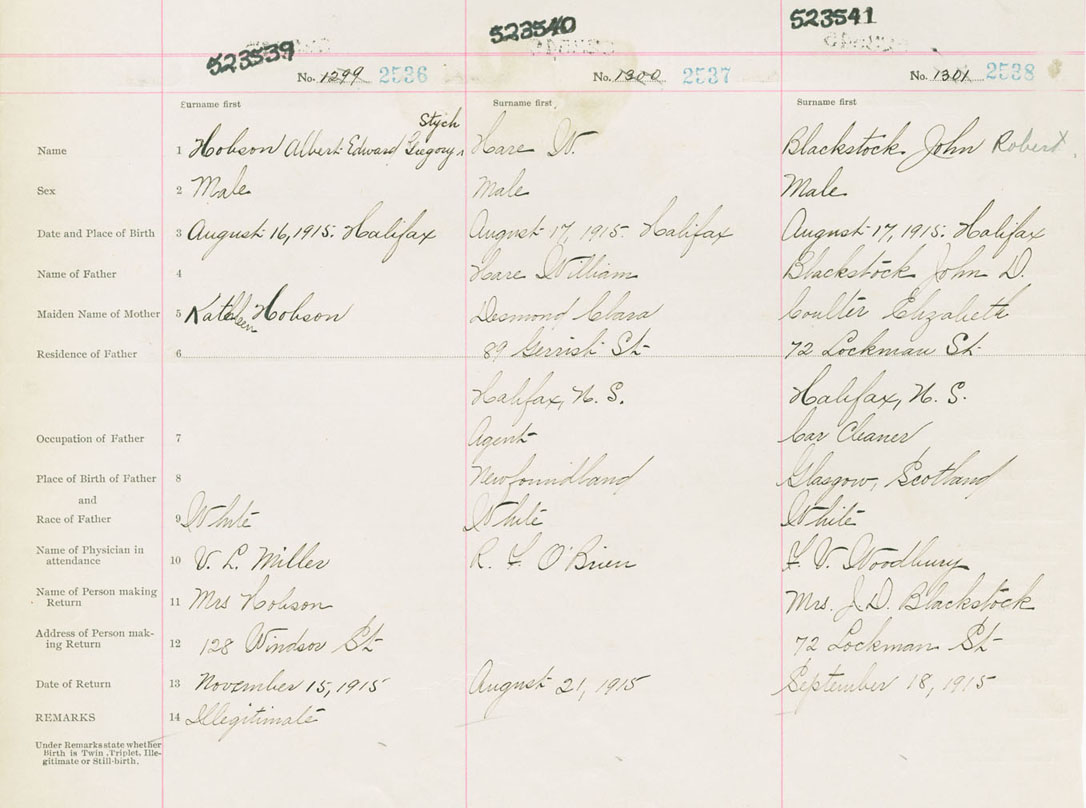 523539 523540 523541
No. 1299 2536 No. 1300 2537 No. 1301 2538
Surname first Surname first Surname first
Stych
Name 1 Hobson Albert Edward Gregory Hare W. Blackstock John Robert
Sex 2 Male Male Male
Date and Place of Birth 3 August 16, 1915. Halifax August 17, 1915. Halifax August 17, 1915. Halifax
Name of Father 4 Hare William Blackstock John D.
Maiden Name of Mother 5 Kathleen Hobson Desmond Clara Coulter Elizabeth
Residence of Father 6 89 Gerrish St 72 Lockman St
Halifax, N. S. Halifax, N. S.
Occupation of Father 7 Agent Car Cleaner
Place of Birth of Father 8 Newfoundland Glasgow, Scotland
and
Race of Father 9 White White White
Name of Physician in
attendance 10 V. L. Miller R. F. O'Brien F. V. Woodbury
Name of Person making
Return 11 Mrs Hobson Mrs. J. D. Blackstock
Address of Person mak-
ing Return 12 128 Windsor St 72 Lockman St
Date of Return 13 November 15, 1915 August 21, 1915 September 18, 1915
REMARKS 14 Illegitimate
Under Remarks state whether
Birth is Twin, Triplet, Ille-
gitimate or Still-birth.